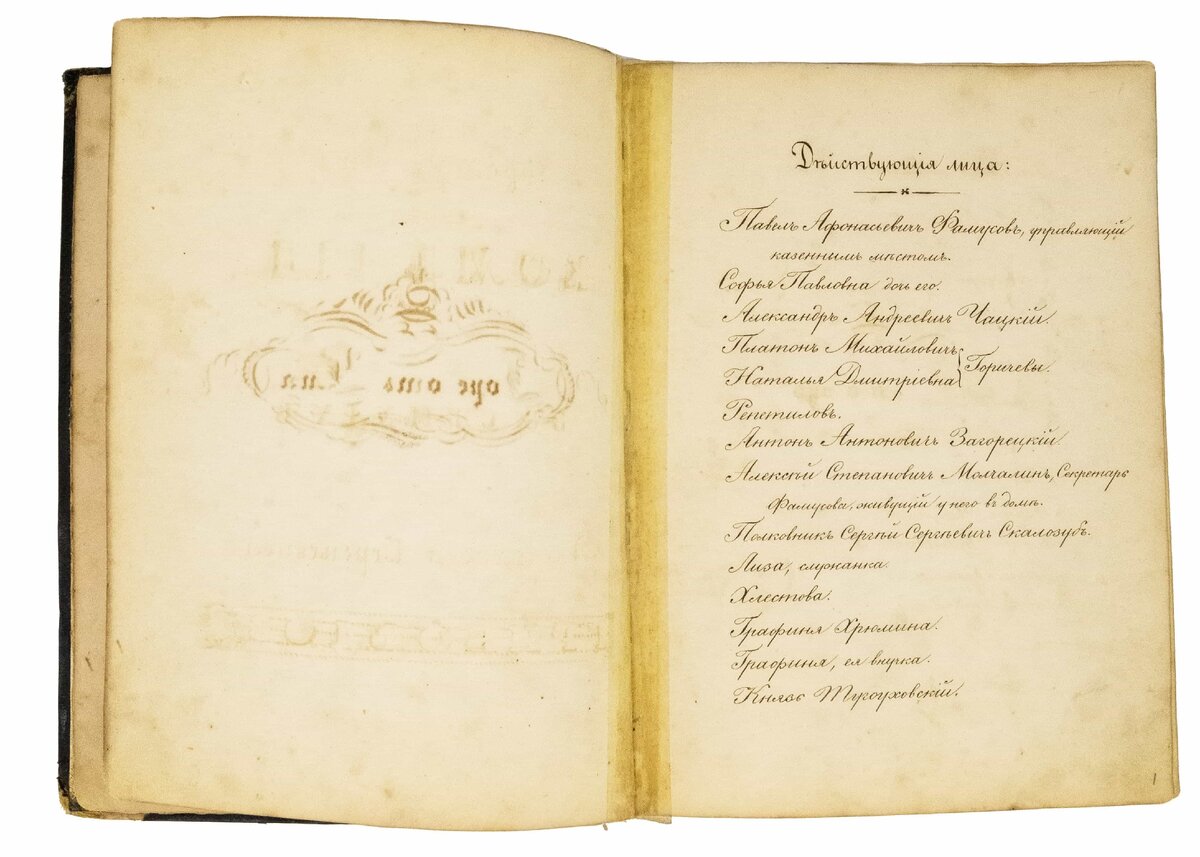 Горе отъ Ума
Дѣйствующія лица:
Павелъ Афонасьевичъ Фамусовъ, управляющій
казеннымъ мѣстомъ.
Софья Павловна дочь его.
Александръ Андреевичъ Чацкій.
Платонъ Михайловичъ
Наталья Дмитріевна } Горичевы.
Репетиловъ.
Антонъ Антоновичъ Загорецкій.
Алексѣй Степановичъ Молчалинъ, Секретарь
Фамусова, живущій у него въ домѣ.
Полковникъ Сергѣй Сергѣевичъ Скалозубъ.
Лиза, служанка.
Хлестова.
Графиня Хрюмина.
Графиня, ея внучка.
Князь Тугоуховскій.
1